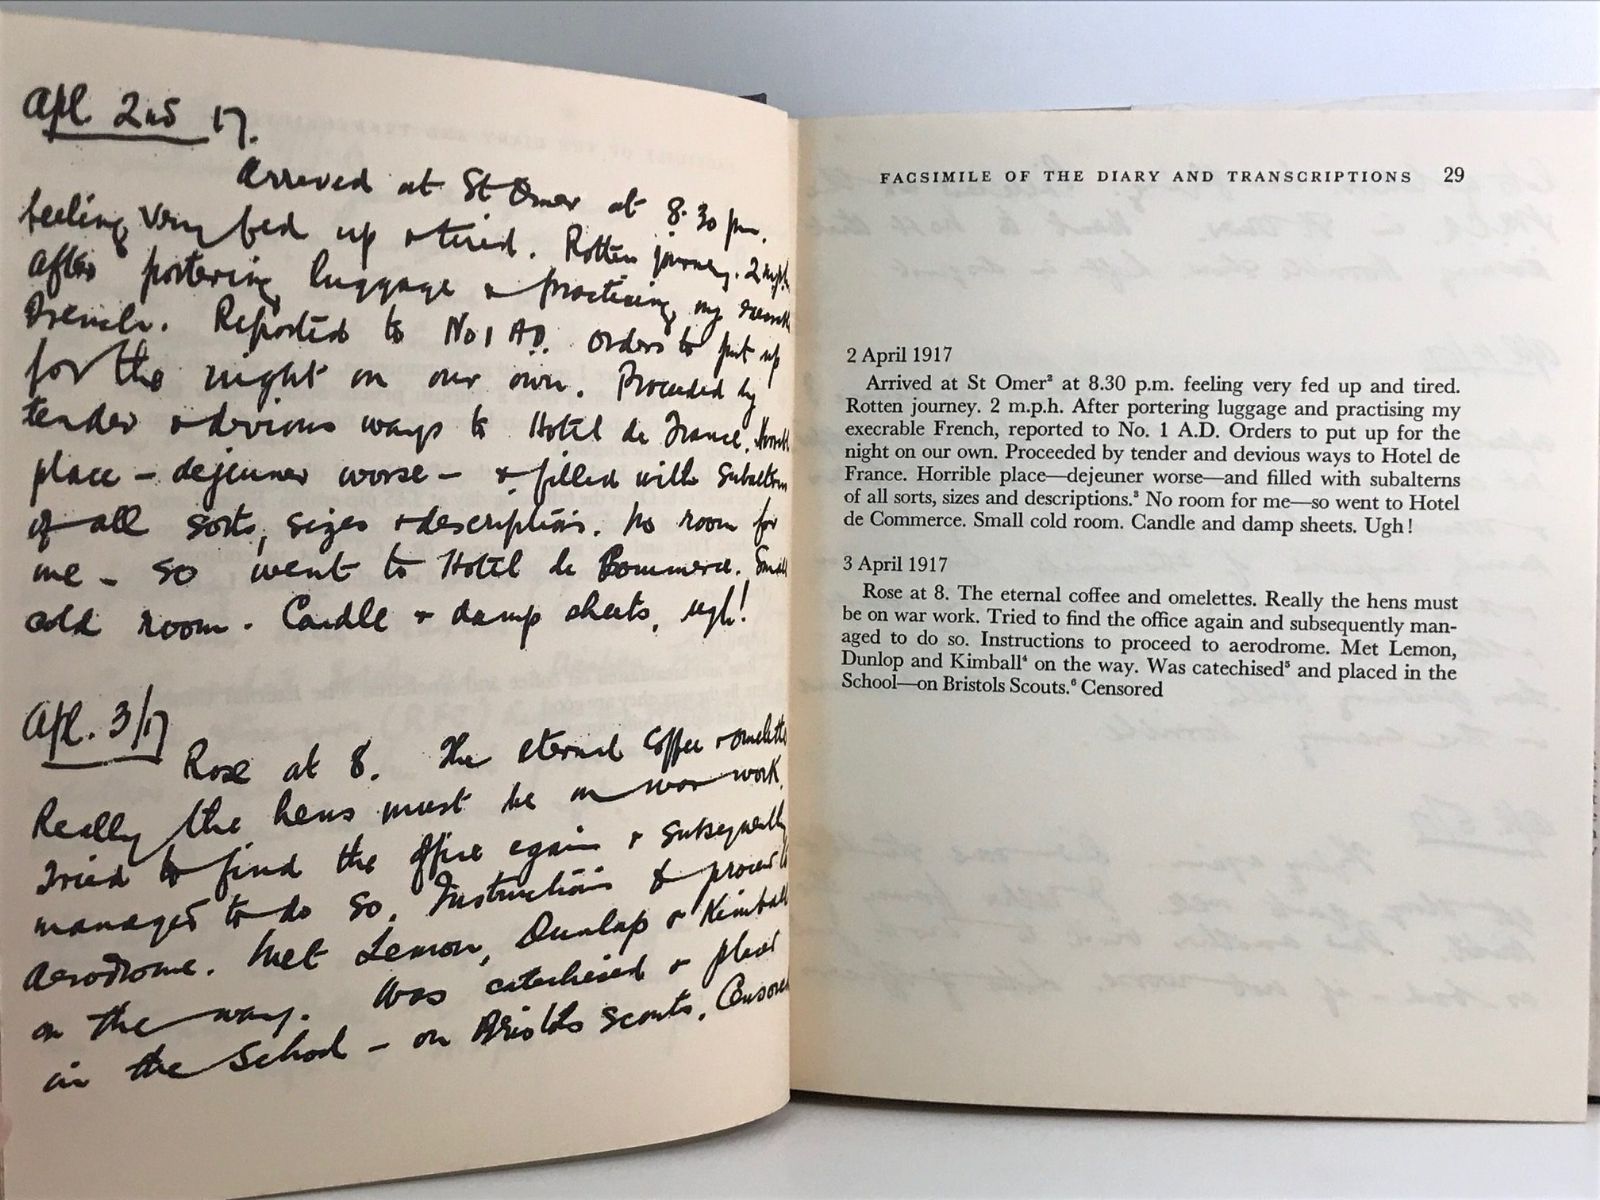 Apl. 2nd 17.
Arrived at St Omer at 8.30 pm.
feeling very fed up & tired. Rotten journey. 2 mph.
After portering luggage & practising my
French. Reported to No 1 AD. Orders to put up
for the night on our own. Proceeded by
tender & devious ways to Hotel de France.
place – dejeuner worse – & filled with Subaltern
of all sorts, sizes & descriptions. No room for
me – so went to Hotel de Commerce. Small
cold room. Candle & damp sheets, ugh!
Apl. 3/17
Rose at 8. The eternal coffee & omelette
Really the hens must be on war work.
Tried to find the office again & subsequently
managed to do so. Instructions to proceed to
aerodrome. Met Lemon, Dunlop & Kimball
on the way. Was catechised & placed
in the School – on Bristols Scouts. Censored
FACSIMILE OF THE DIARY AND TRANSCRIPTIONS 29
2 April 1917
Arrived at St Omer² at 8.30 p.m. feeling very fed up and tired.
Rotten journey. 2 m.p.h. After portering luggage and practising my
execrable French, reported to No. 1 A.D. Orders to put up for the
night on our own. Proceeded by tender and devious ways to Hotel de
France. Horrible place—dejeuner worse—and filled with subalterns
of all sorts, sizes and descriptions.³ No room for me—so went to Hotel
de Commerce. Small cold room. Candle and damp sheets. Ugh!
3 April 1917
Rose at 8. The eternal coffee and omelettes. Really the hens must
be on war work. Tried to find the office again and subsequently man-
aged to do so. Instructions to proceed to aerodrome. Met Lemon,
Dunlop and Kimball⁴ on the way. Was catechised⁵ and placed in the
School—on Bristols Scouts.⁶ Censored